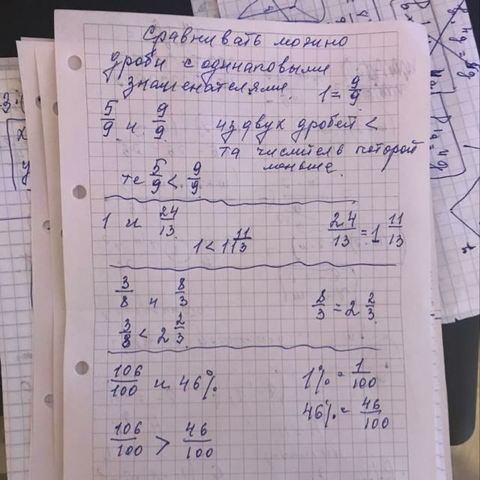 Сравнивать можно
дроби с одинаковыми
знаменателями.
1 = 9/9
5/9 и 9/9 из двух дробей <
та числитель которой
меньше.
те 5/9 < 9/9
1 и 24/13 24/13 = 1 11/13
1 < 1 11/13
3/8 и 8/3 8/3 = 2 2/3
3/8 < 2 2/3
106/100 и 46% 1% = 1/100
46% = 46/100
106/100 > 46/100